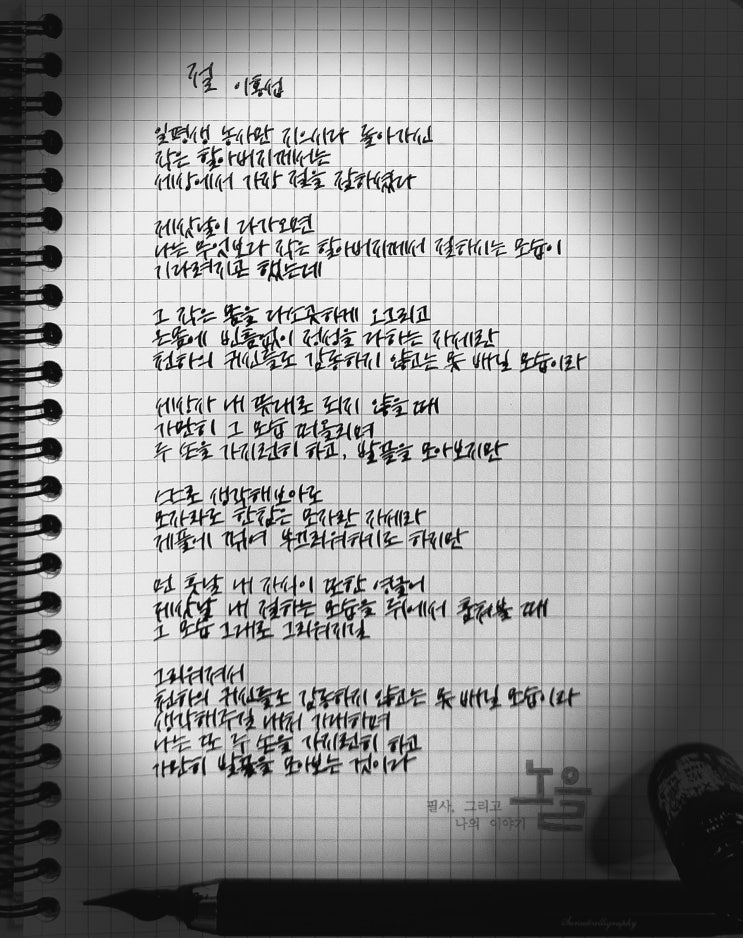 절 이홍섭
일평생 농사만 지으시다 돌아가신
작은 할아버지께서는
세상에서 가장 절을 잘하셨다
제삿날이 다가오면
나는 무엇보다 작은 할아버지께서 절하시는 모습이
기다려지곤 했는데
그 작은 몸을 다소곳하게 오그리고
온몸에 빈틈없이 정성을 다하는 자세란
천하의 귀신들도 감동하지 않고는 못 배길 모습이라
세상사 내 뜻대로 되지 않을 때
가만히 그 모습 떠올리며
두 손을 가지런히 하고, 발끝을 모아보지만
스스로 생각해보아도
모자라도 한참은 모자란 자세라
제풀에 꺾여 부끄러워하기도 하지만
먼 훗날 내 자식이 또한 영글어
제삿날 내 절하는 모습을 뒤에서 훔쳐볼 때
그 모습 그대로 그리워지길
그리워져서
천하의 귀신들도 감동하지 않고는 못 배길 모습이라
생각해주길 내처 기대하며
나는 또 두 손을 가지런히 하고
가만히 발끝을 모아보는 것이라
필사, 그리고
나의 이야기
노을